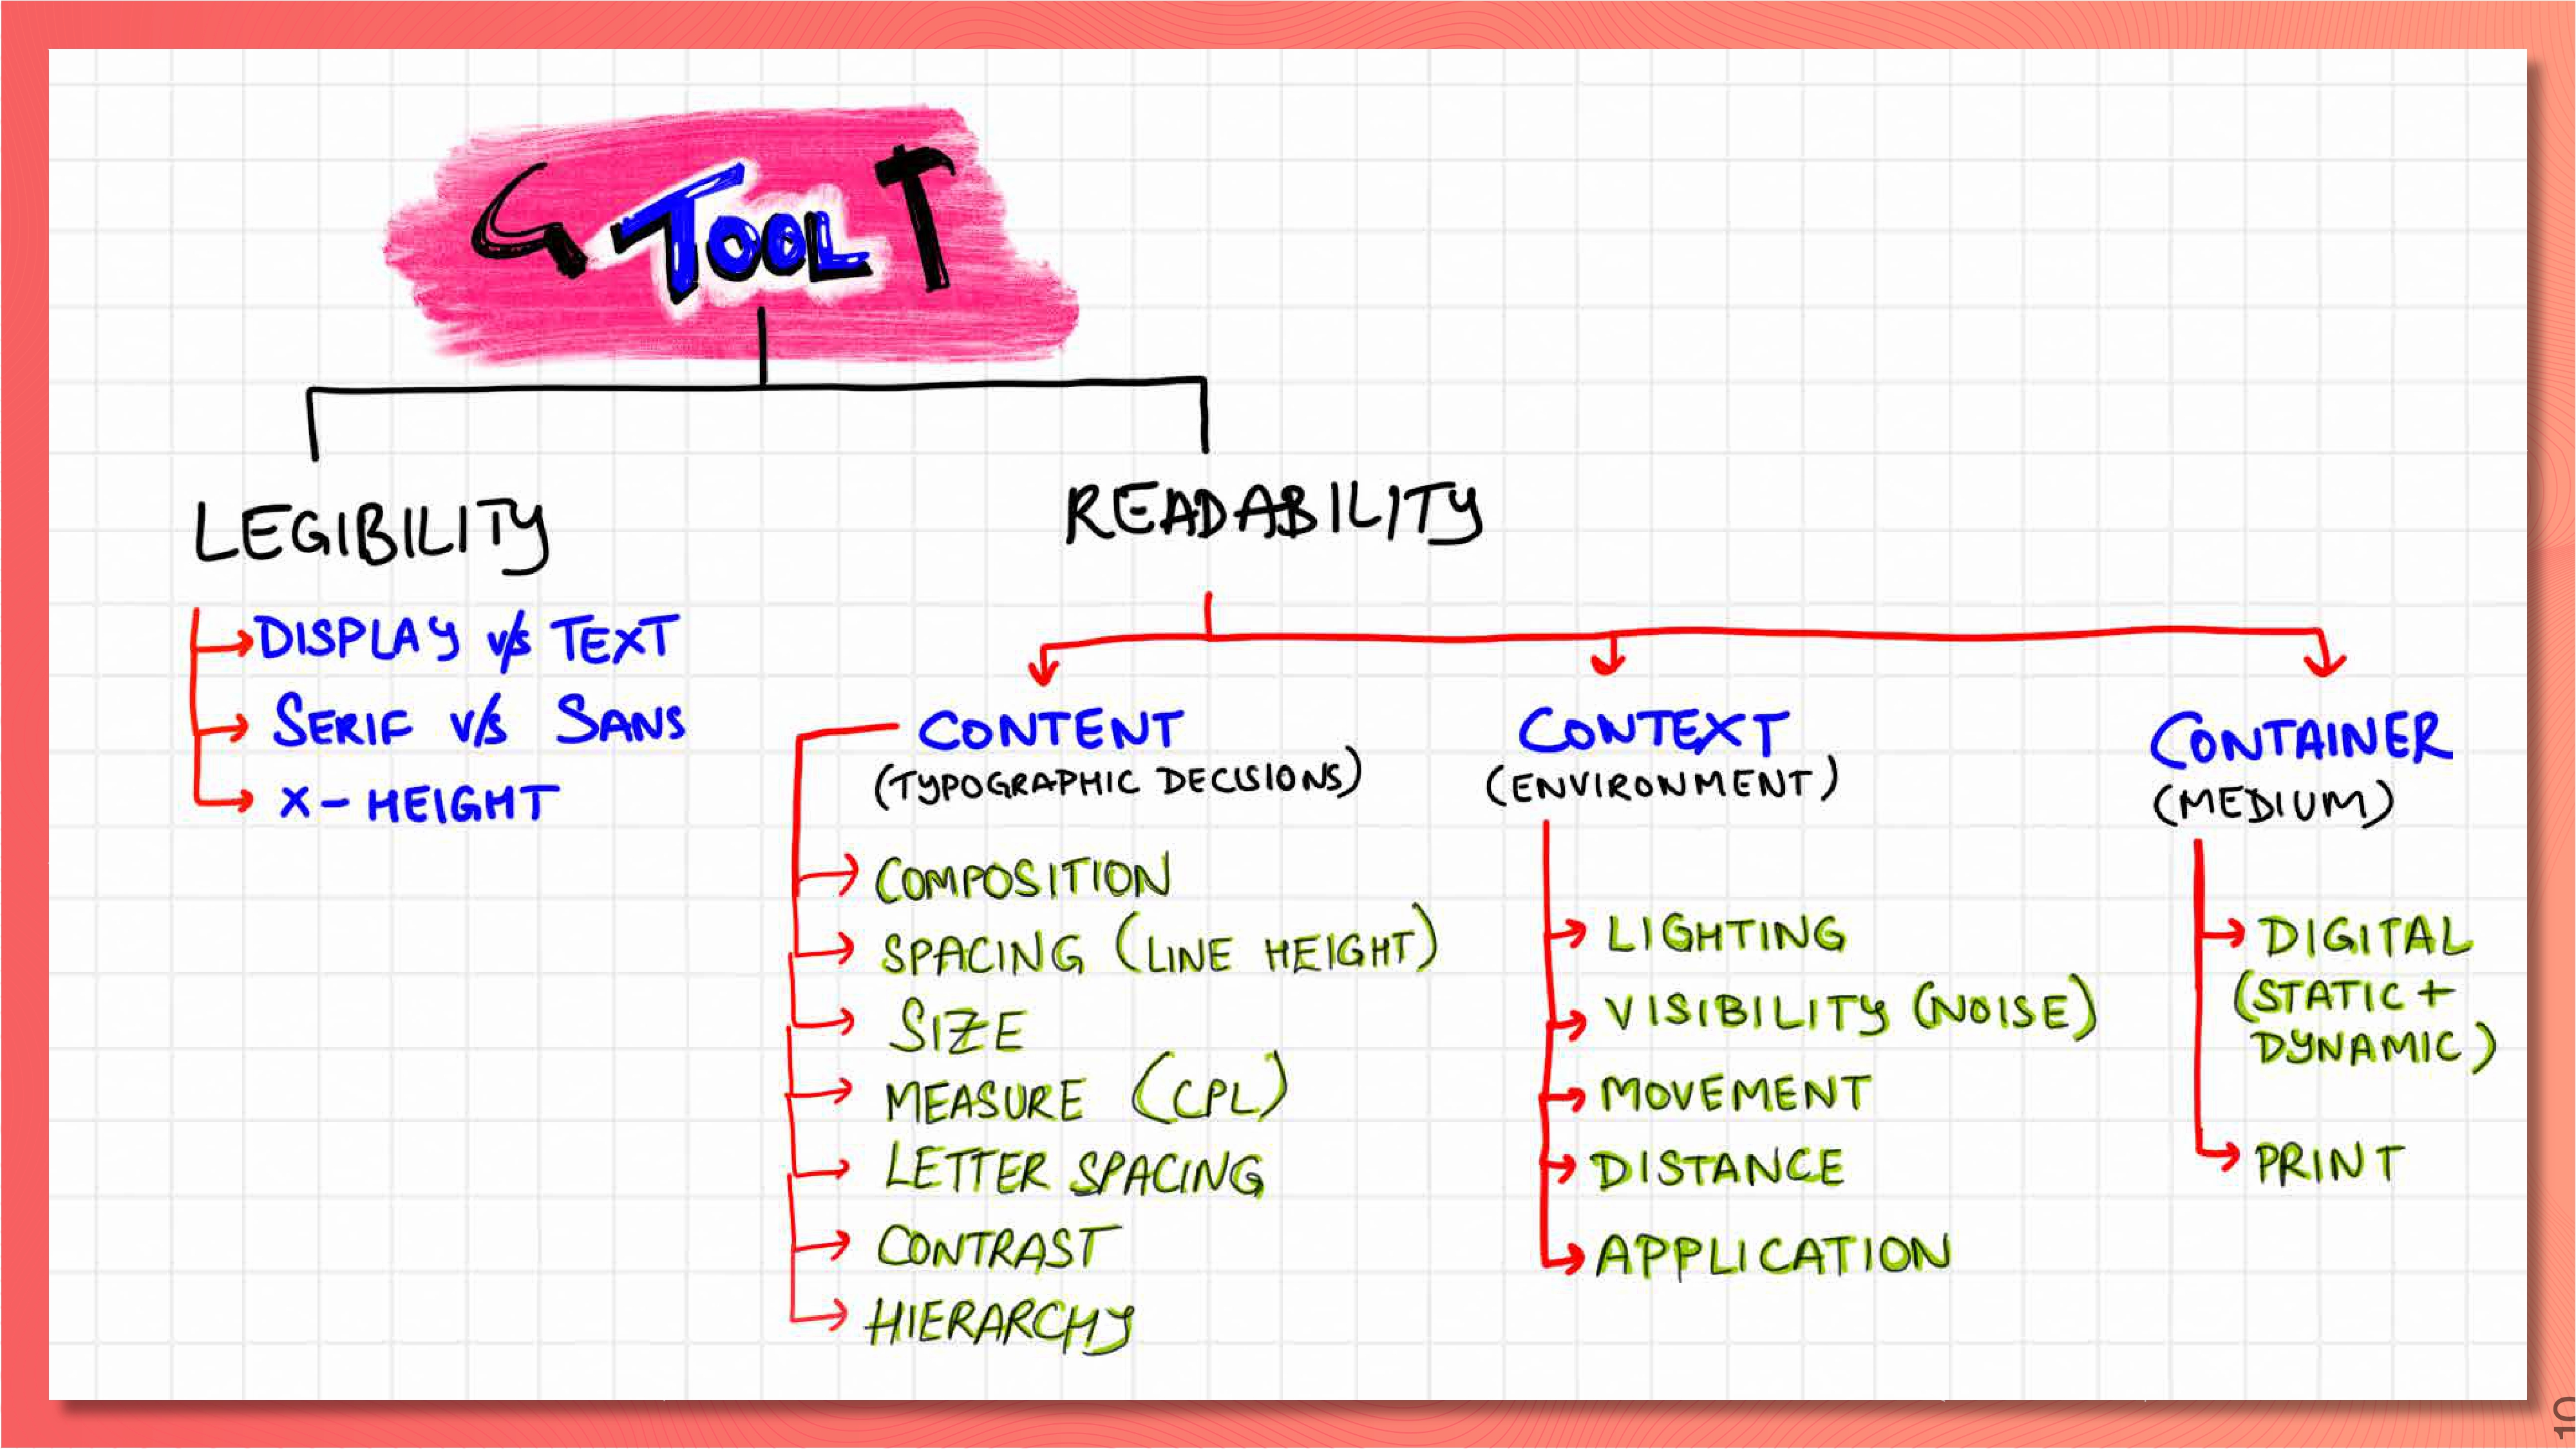 TOOL
LEGIBILITY
DISPLAY v/s TEXT
SERIF v/s SANS
X-HEIGHT
READABILITY
CONTENT
(TYPOGRAPHIC DECISIONS)
COMPOSITION
SPACING (LINE HEIGHT)
SIZE
MEASURE (CPL)
LETTER SPACING
CONTRAST
HIERARCHY
CONTEXT
(ENVIRONMENT)
LIGHTING
VISIBILITY (NOISE)
MOVEMENT
DISTANCE
APPLICATION
CONTAINER
(MEDIUM)
DIGITAL
(STATIC +
DYNAMIC)
PRINT
10